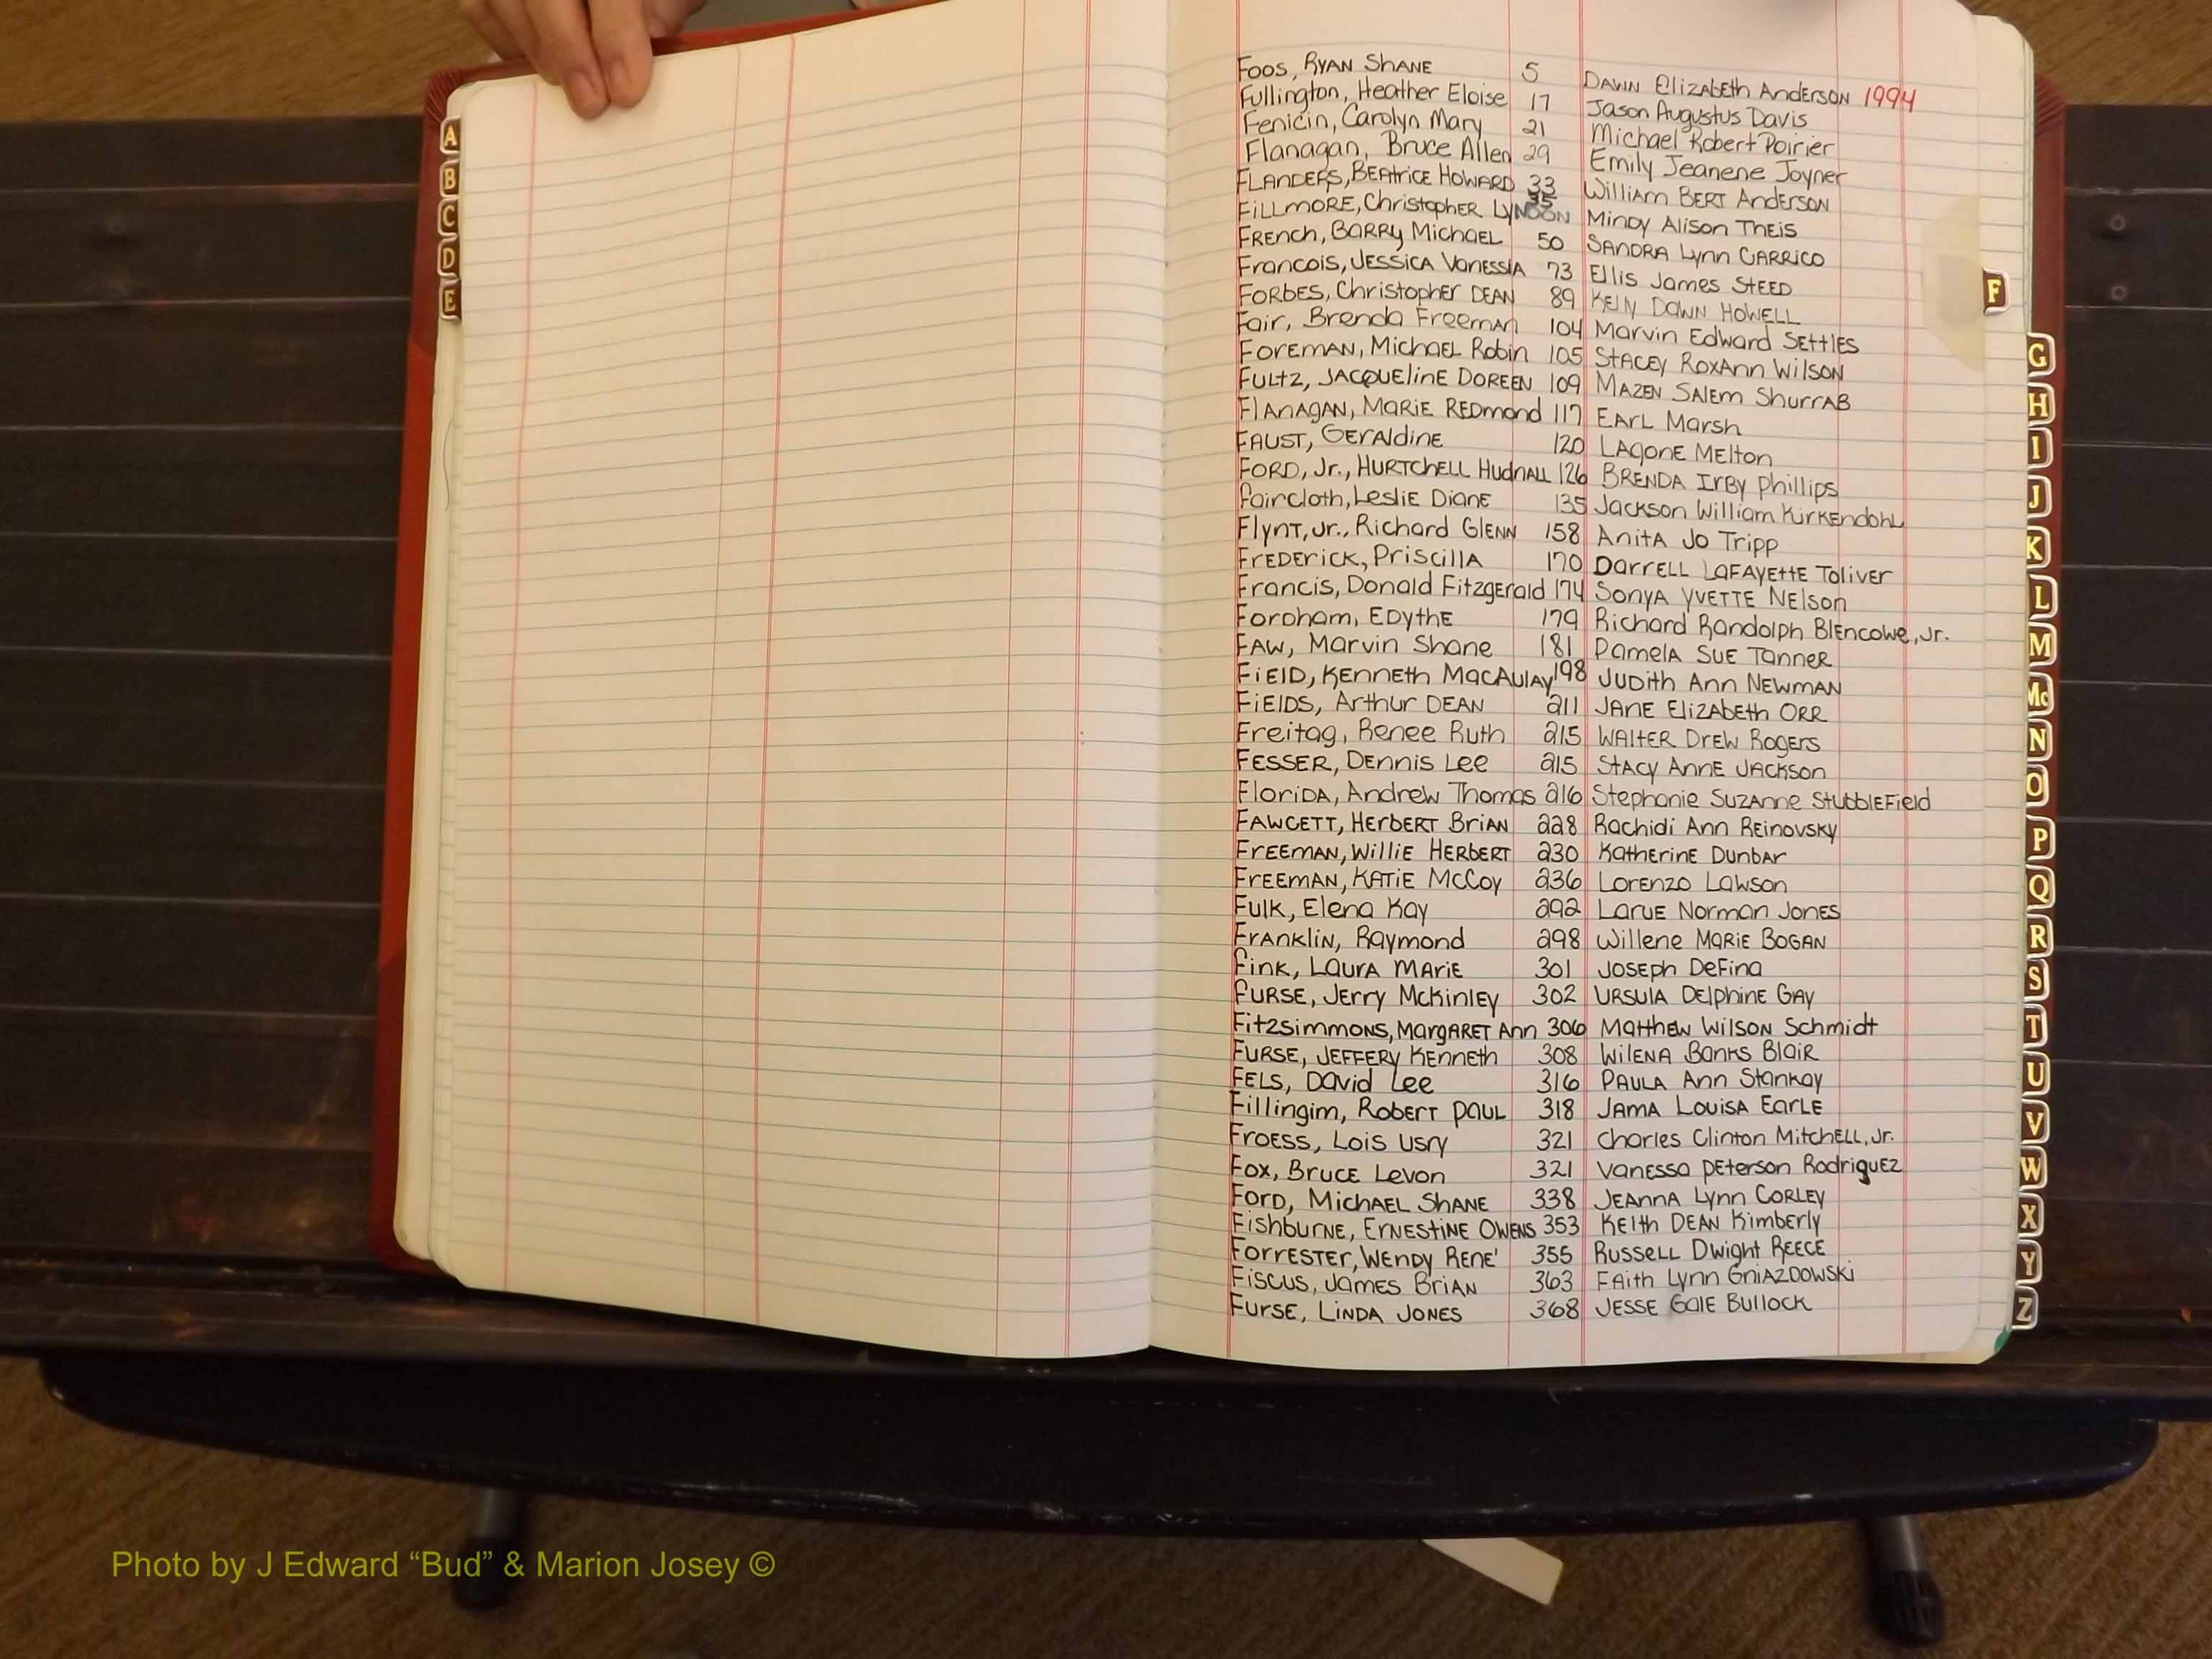 A
B
C
D
E
Foos, Ryan Shane 5 Dawn Elizabeth Anderson 1994
Fullington, Heather Eloise 17 Jason Augustus Davis
Fenicin, Carolyn Mary 21 Michael Robert Poirier
Flanagan, Bruce Allen 29 Emily Jeanene Joyner
Flanders, Beatrice Howard 33 William Bert Anderson
Fillmore, Christopher Lyndon 35 Mindy Alison Theis
French, Barry Michael 50 Sandra Lynn Carrico
Francois, Jessica Vanessia 73 Ellis James Steed
Forbes, Christopher Dean 89 Kelly Dawn Howell
Fair, Brenda Freeman 104 Marvin Edward Settles
Foreman, Michael Robin 105 Stacey RoxAnn Wilson
Fultz, Jacqueline Doreen 109 Mazen Salem Shurrab
Flanagan, Marie Redmond 117 Earl Marsh
Faust, Geraldine 120 Lagone Melton
Ford, Jr., Hurtchell Hudnall 126 Brenda Irby Phillips
Faircloth, Leslie Diane 135 Jackson William Kirkendohl
Flynt, Jr., Richard Glenn 158 Anita Jo Tripp
Frederick, Priscilla 170 Darrell LaFayette Toliver
Francis, Donald Fitzgerald 174 Sonya Yvette Nelson
Fordham, Edythe 179 Richard Randolph Blencowe, Jr.
Faw, Marvin Shane 181 Pamela Sue Tanner
Field, Kenneth MacAulay 198 Judith Ann Newman
Fields, Arthur Dean 211 Jane Elizabeth Orr
Freitag, Renee Ruth 215 Walter Drew Rogers
Fesser, Dennis Lee 215 Stacy Anne Jackson
Florida, Andrew Thomas 216 Stephanie Suzanne Stubblefield
Fawcett, Herbert Brian 228 Rachidi Ann Reinovsky
Freeman, Willie Herbert 230 Katherine Dunbar
Freeman, Katie McCoy 236 Lorenzo Lawson
Fulk, Elena Kay 292 Larue Norman Jones
Franklin, Raymond 298 Willene Marie Bogan
Fink, Laura Marie 301 Joseph DeFina
Furse, Jerry McKinley 302 Ursula Delphine Gay
Fitzsimmons, Margaret Ann 306 Matthew Wilson Schmidt
Furse, Jeffery Kenneth 308 Wilena Banks Blair
Fels, David Lee 316 Paula Ann Stankay
Fillingim, Robert Paul 318 Jama Louisa Earle
Froess, Lois Usry 321 Charles Clinton Mitchell, Jr.
Fox, Bruce Levon 321 Vanessa Peterson Rodriguez
Ford, Michael Shane 338 Jeanna Lynn Corley
Fishburne, Ernestine Owens 353 Keith Dean Kimberly
Forrester, Wendy Rene' 355 Russell Dwight Reece
Fiscus, James Brian 363 Faith Lynn Gniazdowski
Furse, Linda Jones 368 Jesse Gale Bullock
F
G
H
I
J
K
L
M
Mc
N
O
P
Q
R
S
T
U
V
W
X
Y
Z
Photo by J Edward “Bud” & Marion Josey ©